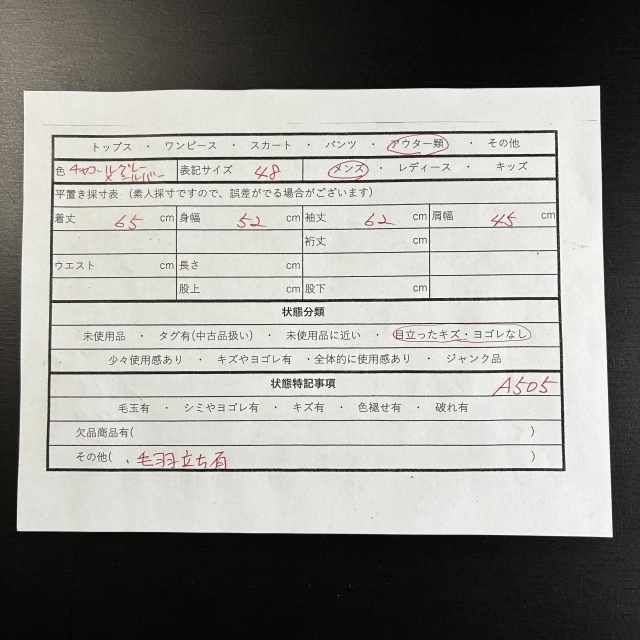 トップス ・ ワンピース ・ スカート ・ パンツ ・ アウター類 ・ その他
色 チャコールグレー×シルバー 表記サイズ 48 メンズ ・ レディース ・ キッズ
平置き採寸表 (素人採寸ですので、誤差がでる場合がございます)
着丈 65 cm 身幅 52 cm 袖丈 62 cm 肩幅 45 cm
裄丈 cm
ウエスト cm 長さ cm
股上 cm 股下 cm
状態分類
未使用品 ・ タグ有(中古品扱い) ・ 未使用品に近い ・ 目立ったキズ・ヨゴレなし
少々使用感あり ・ キズやヨゴレ有 ・全体的に使用感あり ・ ジャンク品
状態特記事項 A505
毛玉有 ・ シミやヨゴレ有 ・ キズ有 ・ 色褪せ有 ・ 破れ有
欠品商品有( )
その他( ・毛羽立ち有 )